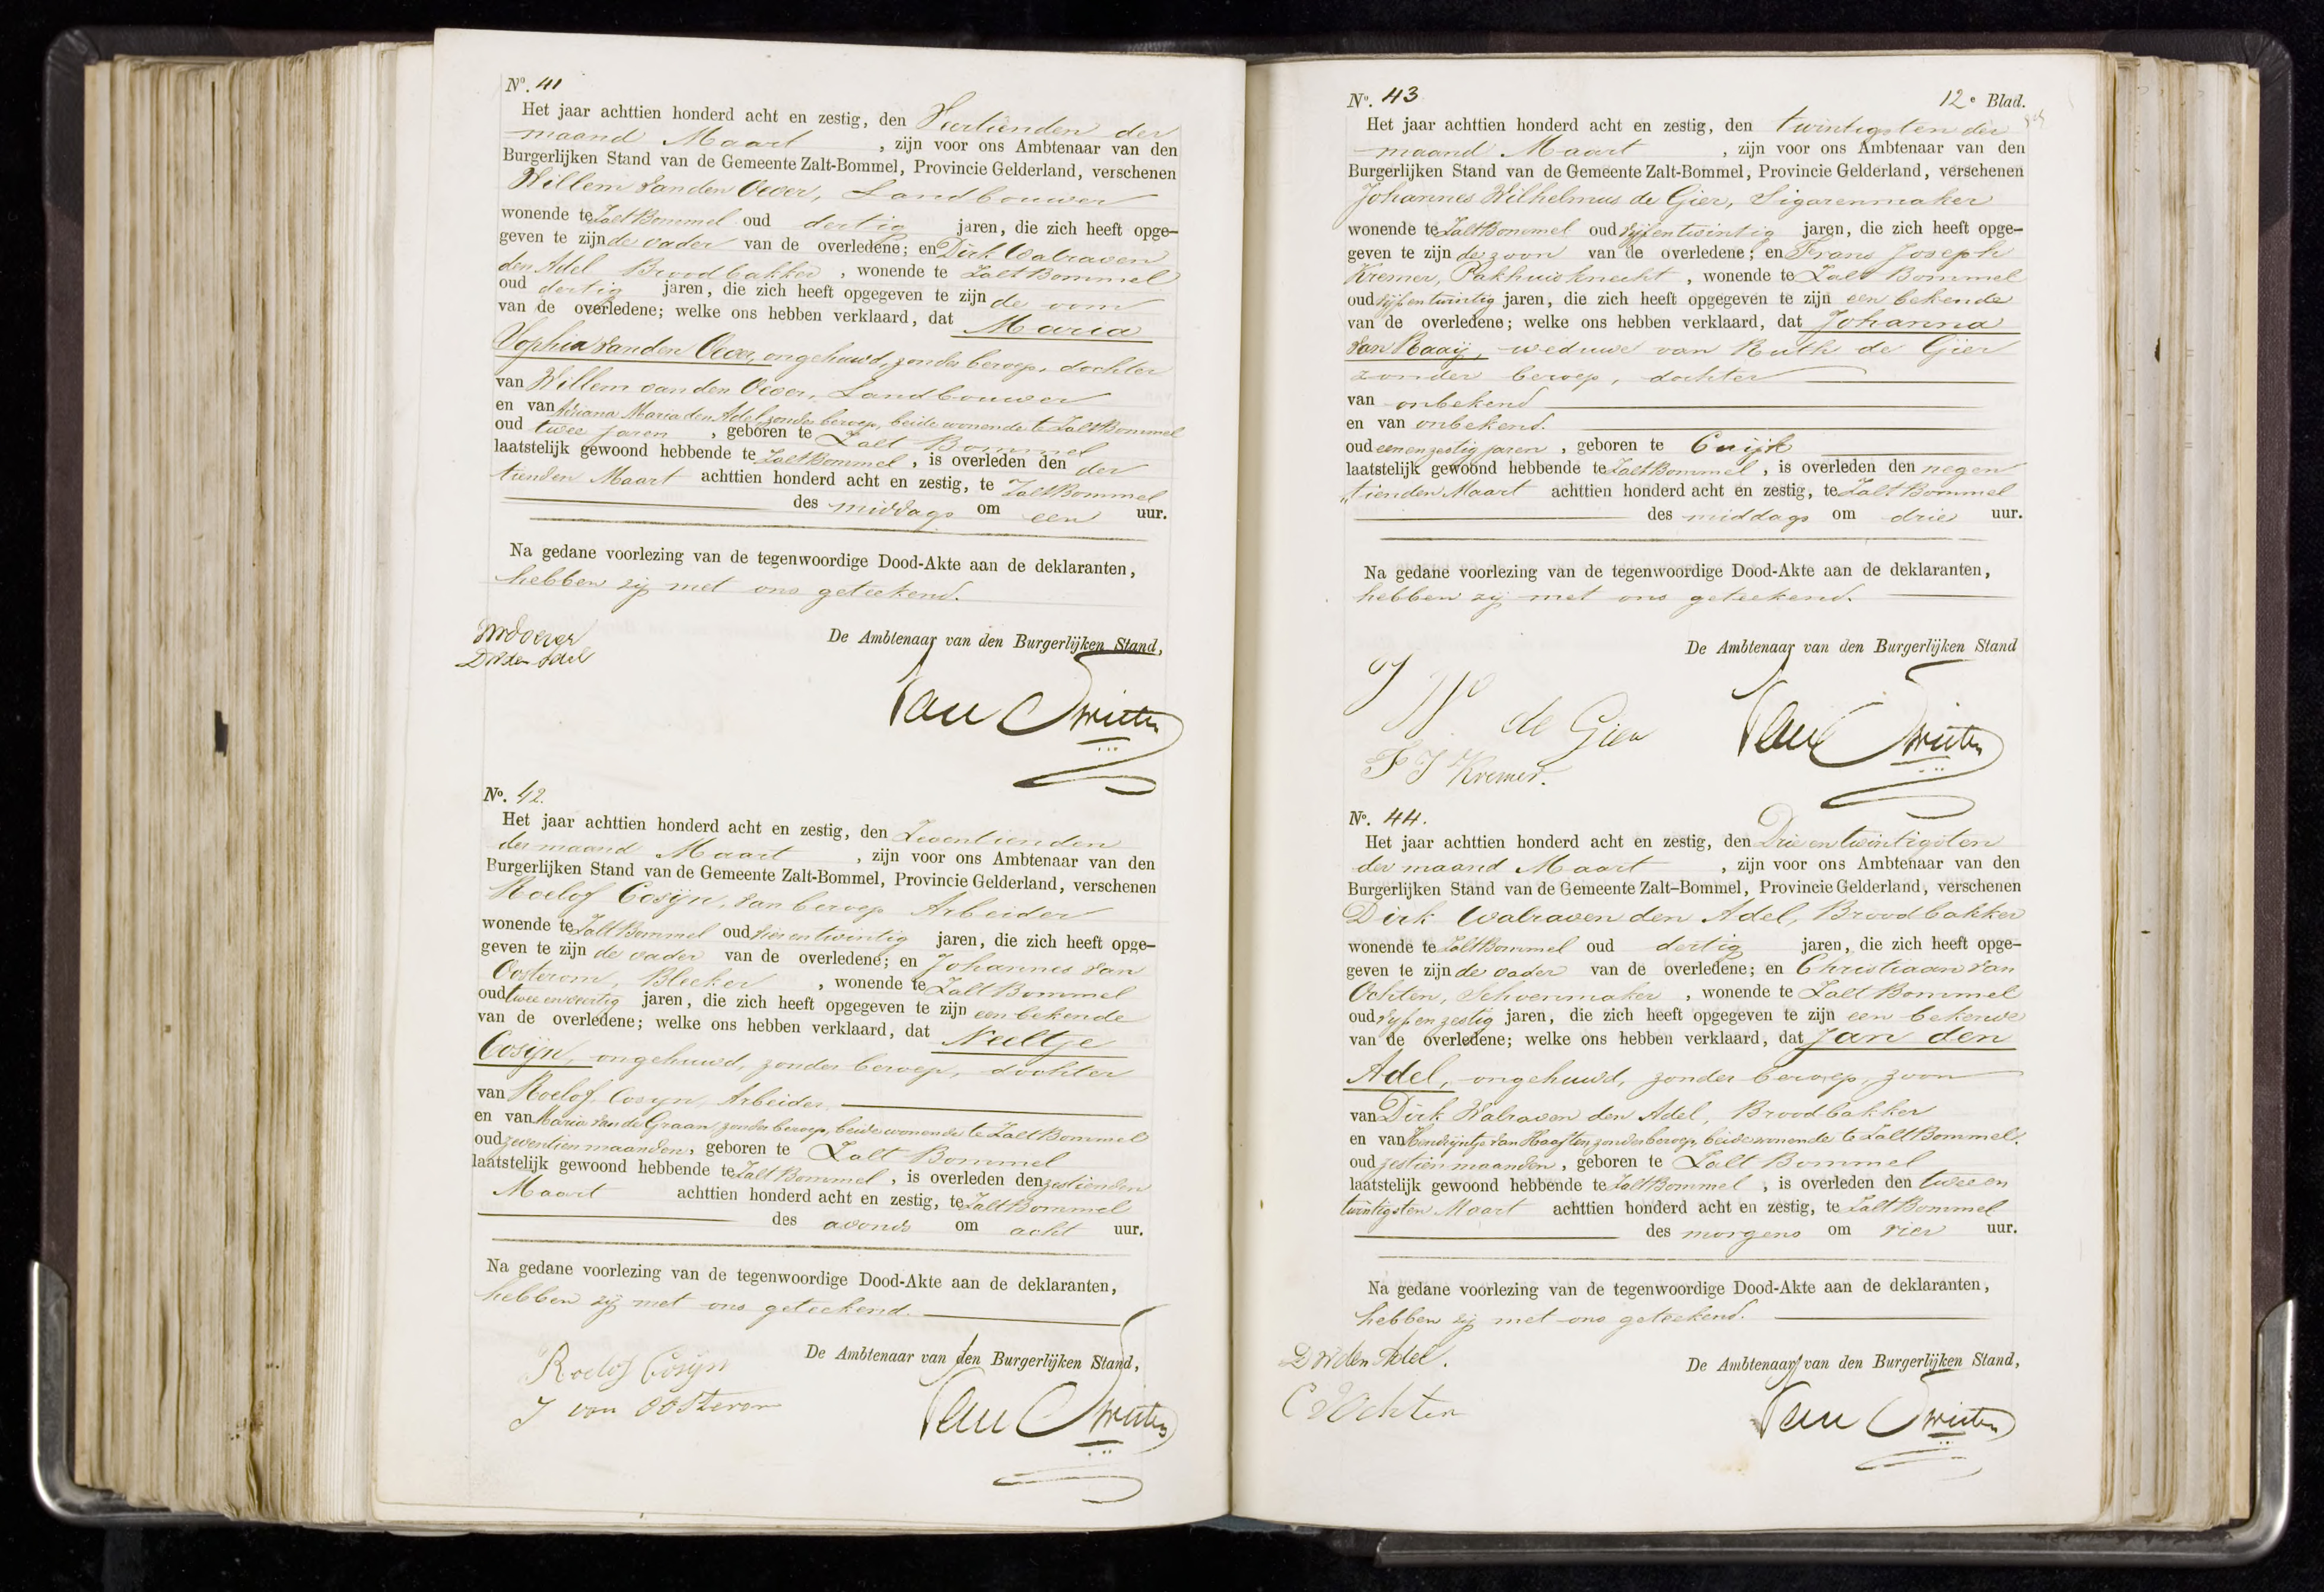 No. 41
Het jaar achttien honderd acht en zestig, den Veertienden der
maand Maart , zijn voor ons Ambtenaar van den
Burgerlijken Stand van de Gemeente Zalt-Bommel, Provincie Gelderland, verschenen
Willem van den Oever, Landbouwer
wonende te ZaltBommel oud dertig jaren, die zich heeft opge-
geven te zijn de vader van de overledene; en Dirk Walraven
den Adel Broodbakker , wonende te Zalt Bommel
oud dertig jaren, die zich heeft opgegeven te zijn de oom
van de overledene; welke ons hebben verklaard, dat Maria
Sophia van den Oever, ongehuwd, zonder beroep, dochter
van Willem van den Oever, Landbouwer
en van Adriana Maria den Adel, zonder beroep, beide wonende te ZaltBommel
oud twee jaren , geboren te Zalt Bommel
laatstelijk gewoond hebbende te ZaltBommel , is overleden den der
tienden Maart achttien honderd acht en zestig, te ZaltBommel
des middags om een uur.
Na gedane voorlezing van de tegenwoordige Dood-Akte aan de deklaranten,
hebben zij met ons geteekend.
De Ambtenaar van den Burgerlijken Stand,
DW den Adel
No. 42.
Het jaar achttien honderd acht en zestig, den Zeventienden
der maand Maart , zijn voor ons Ambtenaar van den
Burgerlijken Stand van de Gemeente Zalt-Bommel, Provincie Gelderland, verschenen
Roelof Cosijn, van beroep Arbeider
wonende te ZaltBommel oud vierentwintig jaren, die zich heeft opge-
geven te zijn de vader van de overledene; en Johannes van
Oosterom, Bleeker , wonende te Zalt Bommel
oud twee en veertig jaren, die zich heeft opgegeven te zijn een bekende
van de overledene; welke ons hebben verklaard, dat Neeltje
Cosijn, ongehuwd, zonder beroep, dochter
van Roelof Cosyn, Arbeider
en van Maria van de Graan, zonder beroep, beide wonende te ZaltBommel
oud zeventien maanden, geboren te Zalt Bommel
laatstelijk gewoond hebbende te Zalt Bommel , is overleden den zestienden
Maart achttien honderd acht en zestig, te ZaltBommel
des avonds om acht uur.
Na gedane voorlezing van de tegenwoordige Dood-Akte aan de deklaranten,
hebben zij met ons geteekend.
De Ambtenaar van den Burgerlijken Stand,
Roelof Cosijn
J van Oosterom
No. 43 12e Blad.
Het jaar achttien honderd acht en zestig, den twintigsten der
maand Maart , zijn voor ons Ambtenaar van den
Burgerlijken Stand van de Gemeente Zalt-Bommel, Provincie Gelderland, verschenen
Johannes Wilhelmus de Gier, Sigarenmaker
wonende te ZaltBommel oud vijfentwintig jaren, die zich heeft opge-
geven te zijn de zoon van de overledene; en Frans Joseph
Kremer, Pakhuisknecht , wonende te Zalt Bommel
oud vijfentwintig jaren, die zich heeft opgegeven te zijn een bekende
van de overledene; welke ons hebben verklaard, dat Johanna
van Raaij, weduwe van Ruth de Gier
zonder beroep, dochter
van onbekend
en van onbekend.
oud eenenzestig jaren , geboren te Cuijk
laatstelijk gewoond hebbende te ZaltBommel , is overleden den negen
"tienden Maart achttien honderd acht en zestig, te Zalt Bommel
des middags om drie uur.
Na gedane voorlezing van de tegenwoordige Dood-Akte aan de deklaranten,
hebben zij met ons geteekend.
De Ambtenaar van den Burgerlijken Stand
J W de Gier
F J Kremer.
No. 44.
Het jaar achttien honderd acht en zestig, den Drie en twintigsten
der maand Maart , zijn voor ons Ambtenaar van den
Burgerlijken Stand van de Gemeente Zalt-Bommel, Provincie Gelderland, verschenen
Dirk Walraven den Adel, Broodbakker
wonende te ZaltBommel oud dertig jaren, die zich heeft opge-
geven te zijn de vader van de overledene; en Christiaan van
Ochten, Schoenmaker , wonende te Zalt Bommel
oud vijf en zestig jaren, die zich heeft opgegeven te zijn een bekende
van de overledene; welke ons hebben verklaard, dat Jan den
Adel, ongehuwd, zonder beroep, zoon
van Dirk Walraven den Adel, Broodbakker
en van Hendrijntje van Haaften, zonder beroep, beide wonende te ZaltBommel.
oud zestien maanden , geboren te Zalt Bommel
laatstelijk gewoond hebbende te ZaltBommel , is overleden den twee en
twintigsten Maart achttien honderd acht en zestig, te ZaltBommel
des morgens om vier uur.
Na gedane voorlezing van de tegenwoordige Dood-Akte aan de deklaranten,
hebben zij met ons geteekend.
De Ambtenaar van den Burgerlijken Stand,
DW den Adel.
C V Ochten